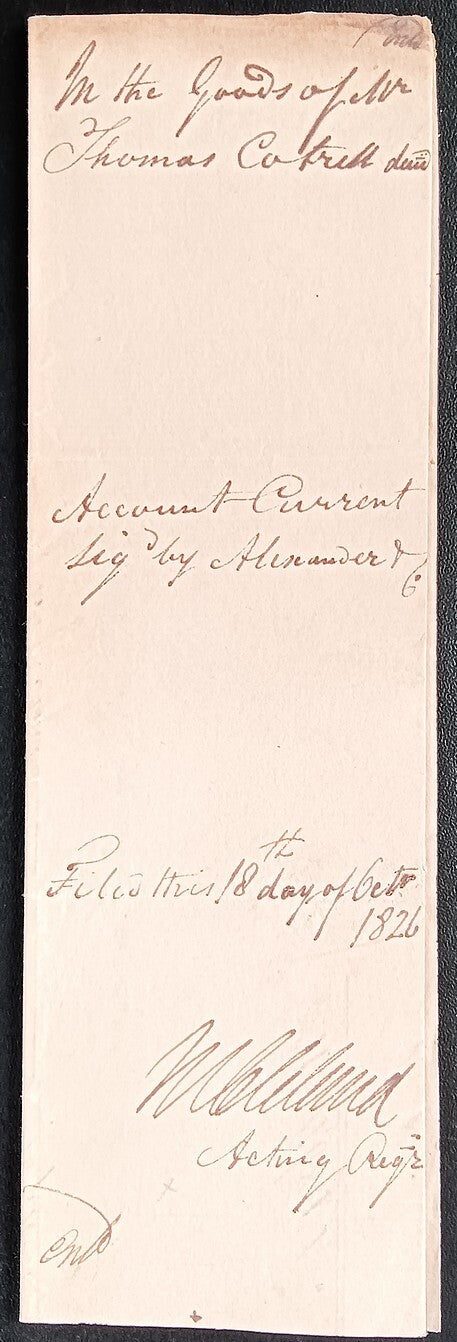 In the Goods of Mr
Thomas Cotrell decd
Account Current
Sigd by Alexander & Co
Filed this 18th day of Octr
1826
Acting Regr
Entd